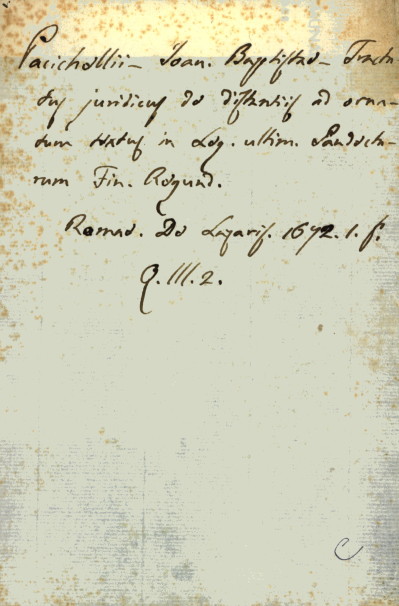 Pacichellii – Joan. Baptistae – Tracta
tus juridicus de distantiis ad orna-
tum status in Leg. ultim. Pandecta-
rum Fin. Regund.
Romae. De Lazaris. 1672. 1. f.
Q. III. 2.
C